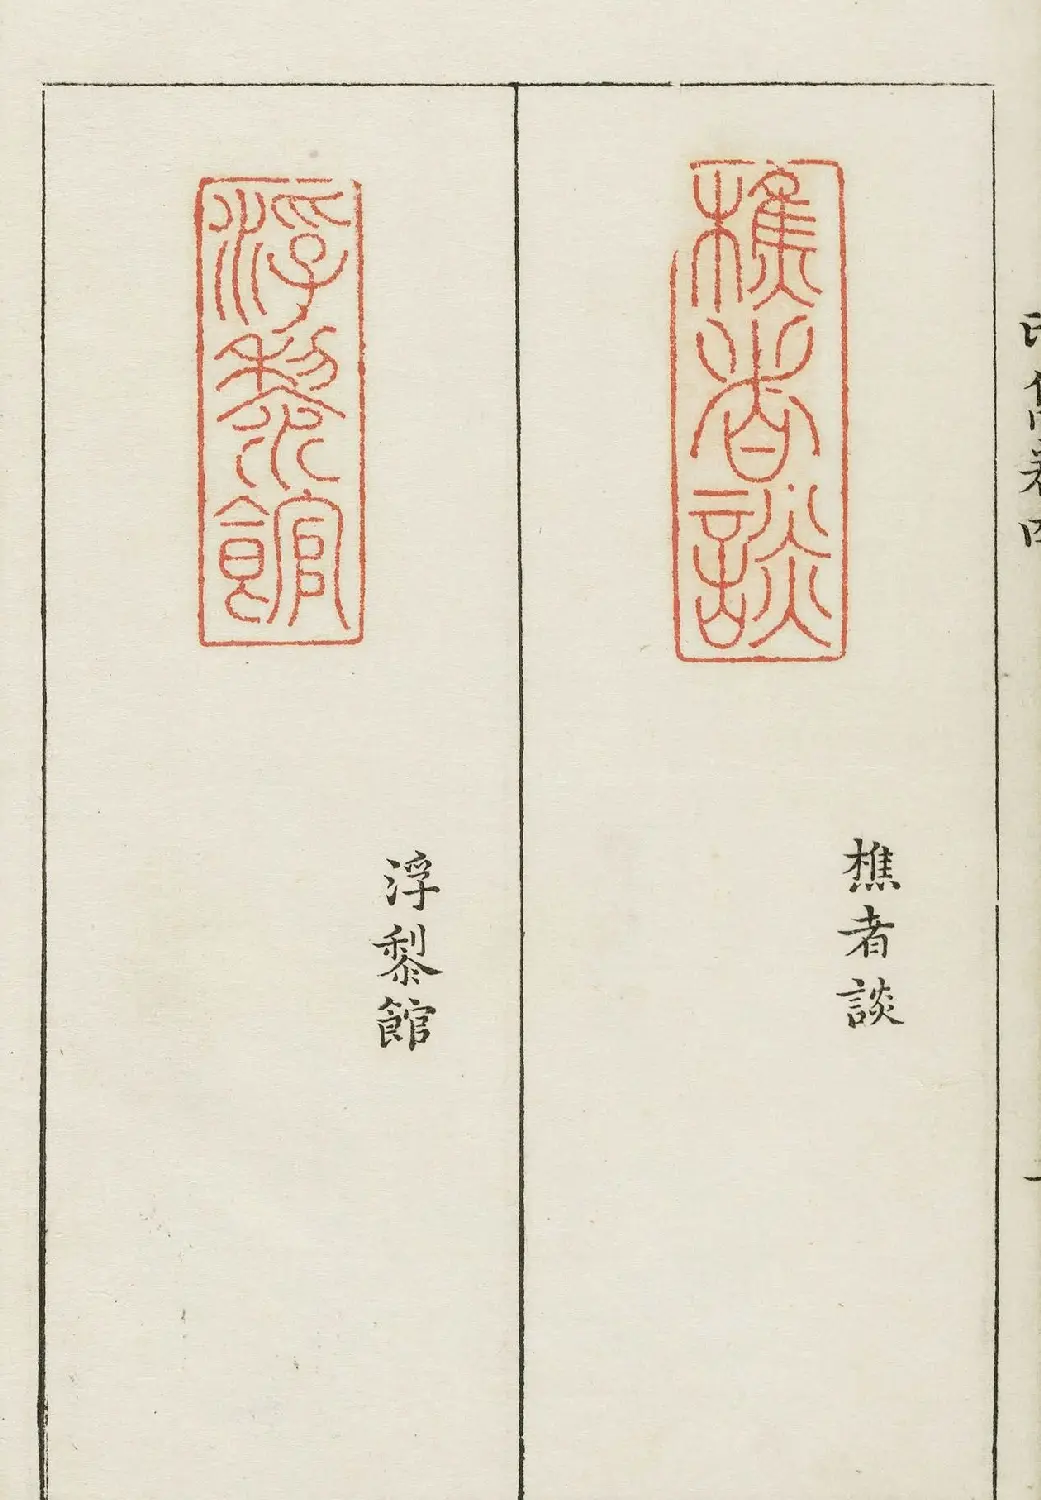 樵者談
樵者談
浮黎館
浮黎館